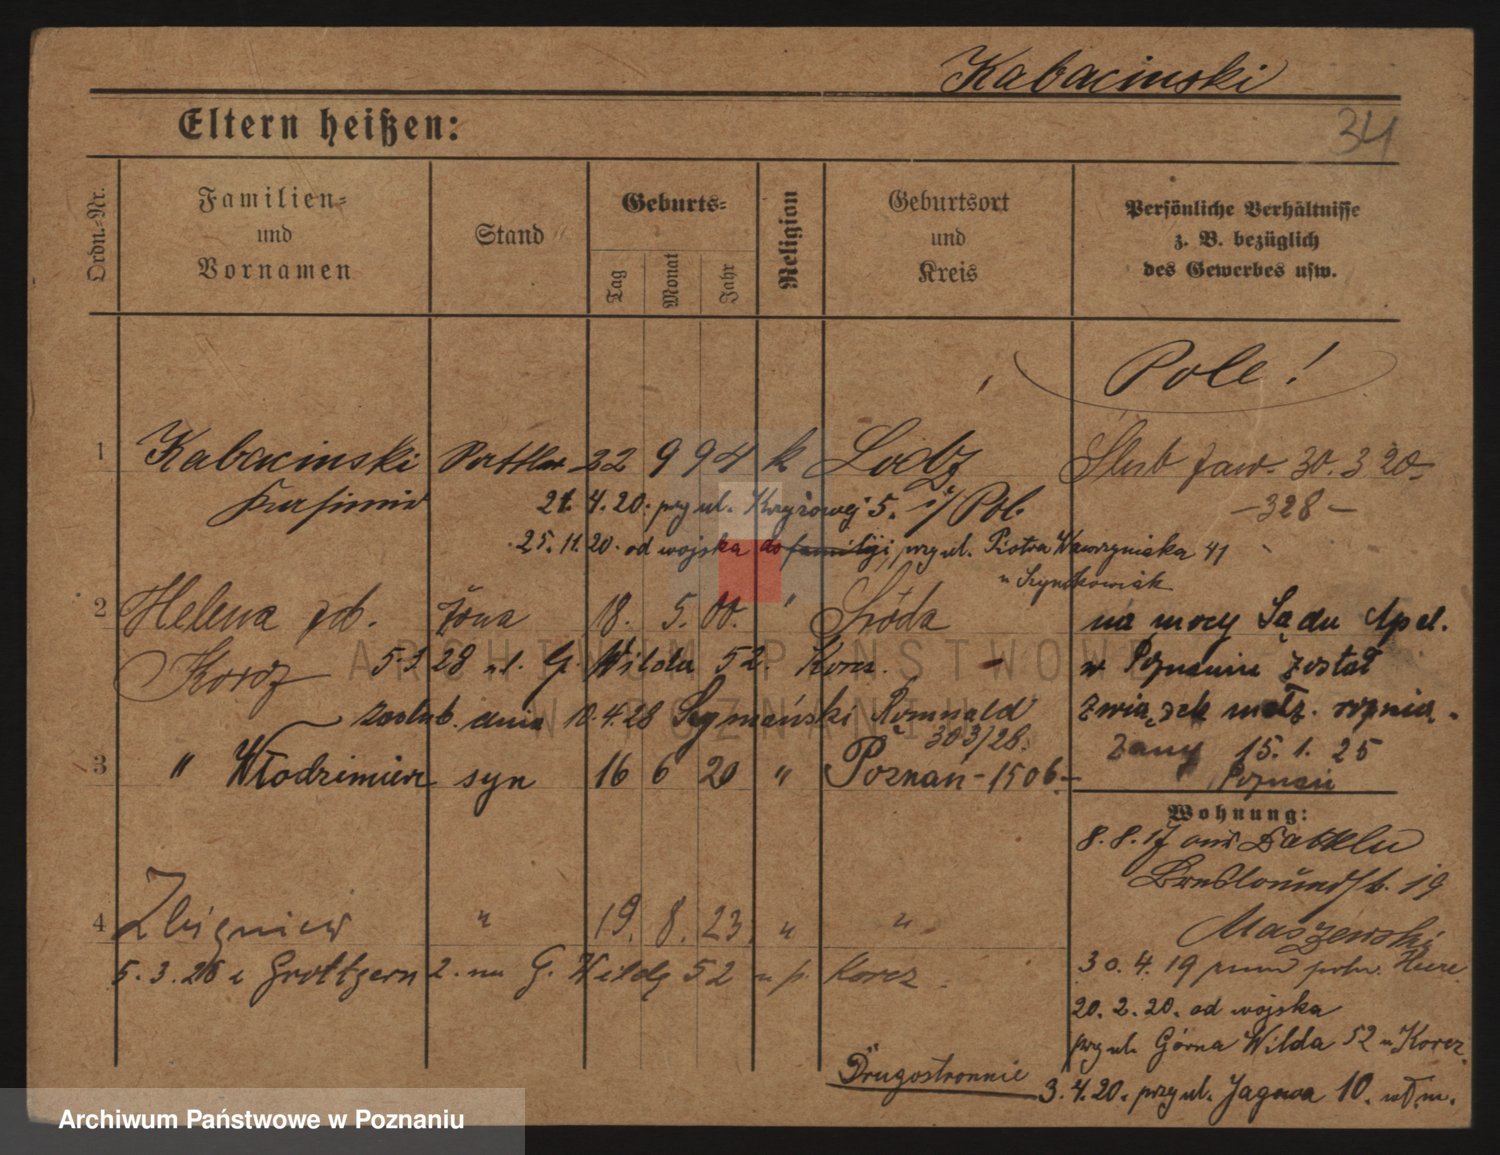 Kabacinski
34
Eltern heißen:
Ordn.-Nr.
Familien- und Vornamen
Stand
Geburts-
Tag
Monat
Jahr
Religion
Geburtsort und Kreis
Persönliche Verhältnisse z. B. bezüglich des Gewerbes usw.
Pole!
1 Kabacinski 22 9 94 k Lodz
Ślub zaw. 30. 3 20
- 328 -
21. 4. 20. przy ul. Krzyżowej 5. i/Pol.
25. 11. 20. od wojska do familji, przy ul. Piotra Wawrzyniaka 41
u Szymkowiak
2 Helena żona 18. 5. 00. Środa
na mocy Sądu Apel.
Korcz 5. 3 28 G. Wilda 52. Korcz.
w Poznaniu został
zaślub. dnia 10. 4. 28 Szymański Romuald
związek małż. rozwią-
303/28.
zany 15. 1. 25
Poznań
3 " Włodzimierz syn 16 6 20 " Poznań - 1506.-
Wohnung:
8. 8. 17 aus
19
4 Zbigniew " 19. 8. 23. " "
Maszewski
5. 3. 28 z Grottgera 2. na G. Wildę 52 u p. Korcz.
30. 4. 19
20. 2. 20. od wojska
przy ul. Górna Wilda 52 u Korcz.
Drugostronnie
3. 4. 20. przy ul. Jasna 10.
ARCHIWUM PAŃSTWOWE
W POZNANIU
Archiwum Państwowe w Poznaniu